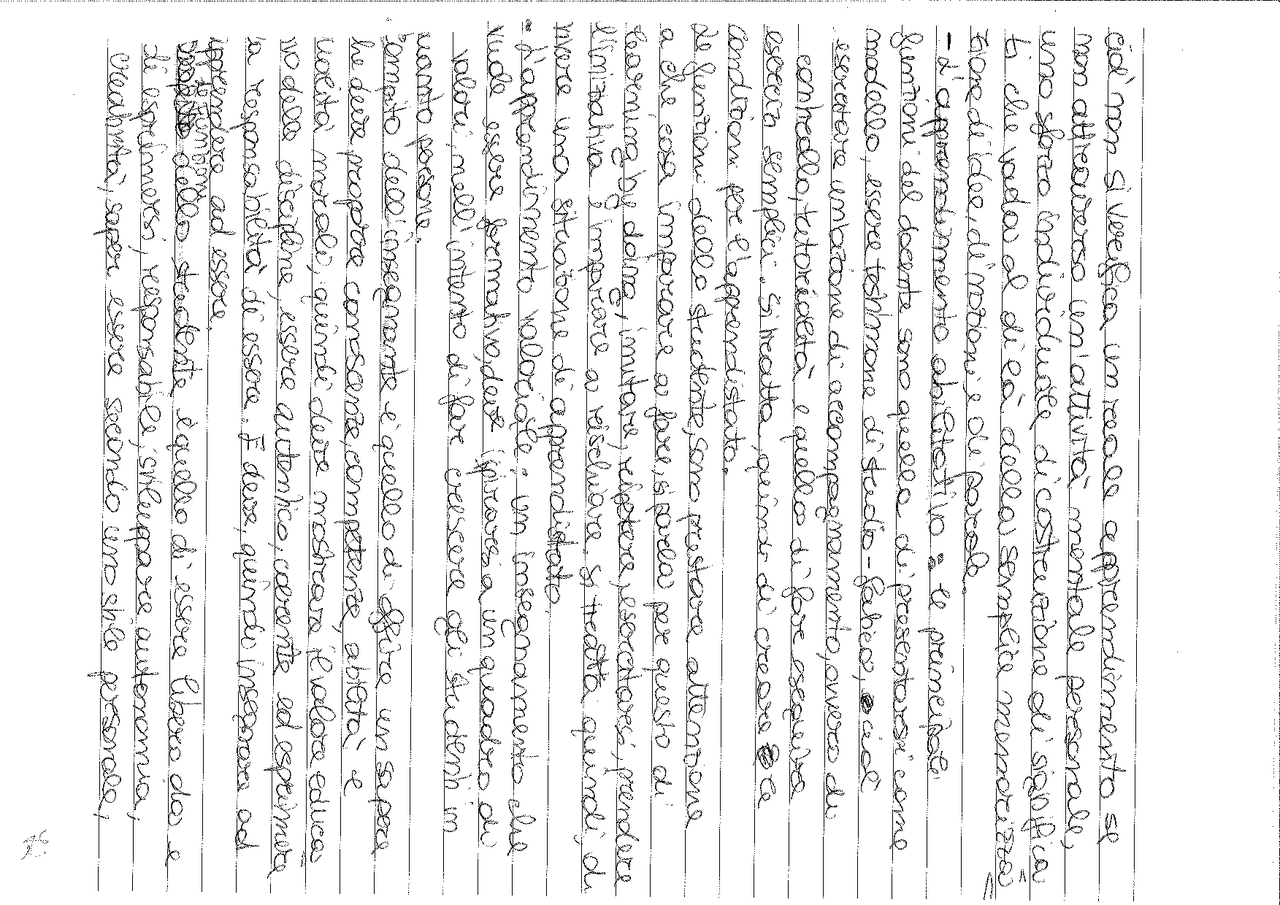 cioè non si verifica un reale apprendimento se
non attraverso un'attività mentale personale,
uno sforzo individuale di costruzione di significa
ti che vada al di là della semplice memorizza
zione di idee, di nozioni e di parole.
- L'apprendimento abilitativo: le principali
funzioni del docente sono quella di presentarsi come
modello, essere testimone di studio - fatica, cioè
esercitare un'azione di accompagnamento, ovvero di
controllo, tutorialità e quella di fare eseguire
esercizi semplici. Si tratta, quindi di creare le
condizioni per l'apprendistato.
Le funzioni dello studente, sono prestare attenzione
a che cosa imparare a fare, si parla per questo di
learning by doing, imitare, ripetere, esercitarsi, prendere
l'iniziativa, imparare a rischiare, si tratta quindi, di
vivere una situazione di apprendistato.
- L'apprendimento valoriale: un insegnamento che
vuole essere formativo, deve ispirarsi a un quadro di
valori, nell'intento di far crescere gli studenti in
quanto persone.
compito dell'insegnante è quello di offrire un sapere
che deve proporre conoscenze, competenze, abilità e
moralità, quindi deve mostrare il valore educa
vo delle discipline, essere autentico, coerente ed esprimere
la responsabilità di essere. E deve, quindi insegnare ad
apprendere ad essere.
dello studente è quello di essere libero da e
di esprimersi, responsabile, sviluppare autonomia,
creatività, saper essere secondo uno stile personale,